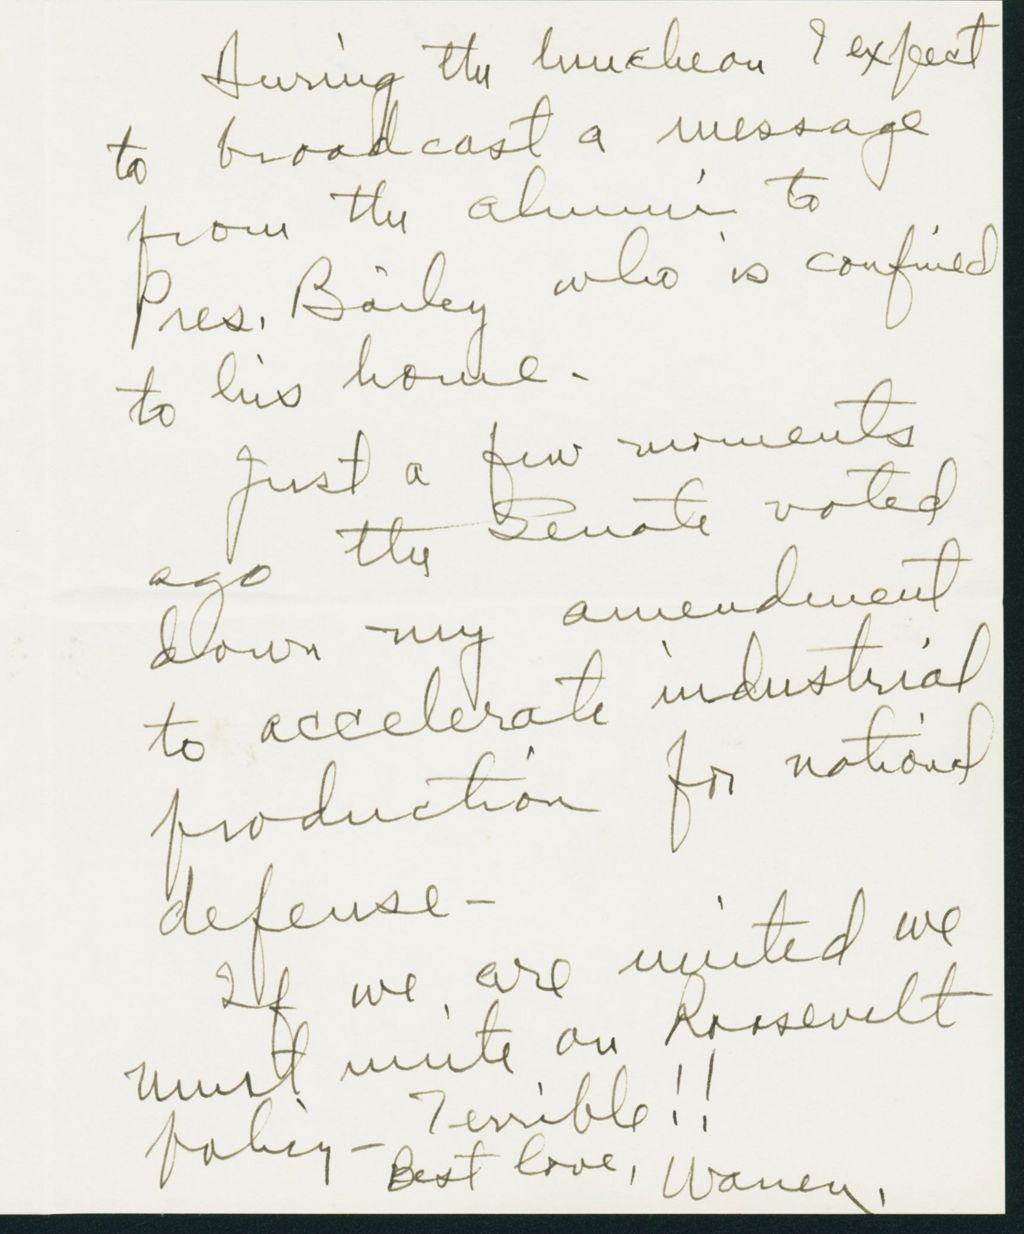 During the luncheon I expect
to broadcast a message
from the alumni to
Pres. Bailey who is confined
to his home.
Just a few moments
ago the Senate voted
down my amendment
to accelerate industrial
production for national
defense -
If we are united we
must unite on Roosevelt
policy - Terrible!!
Best love, Warren.